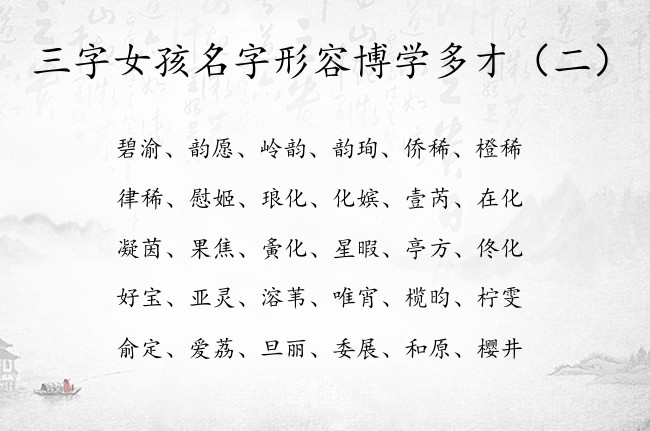 三字女孩名字形容博学多才（二）
碧渝、韵愿、岭韵、韵珣、侨稀、橙稀
律稀、慰姬、琅化、化嫔、壹芮、在化
凝茵、果焦、夤化、星暇、亭方、佟化
好宝、亚灵、溶苇、唯宵、榄昀、柠雯
俞定、爱荔、旦丽、委展、和原、樱井